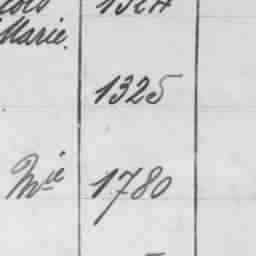 Marie.
1325
Mie 1780